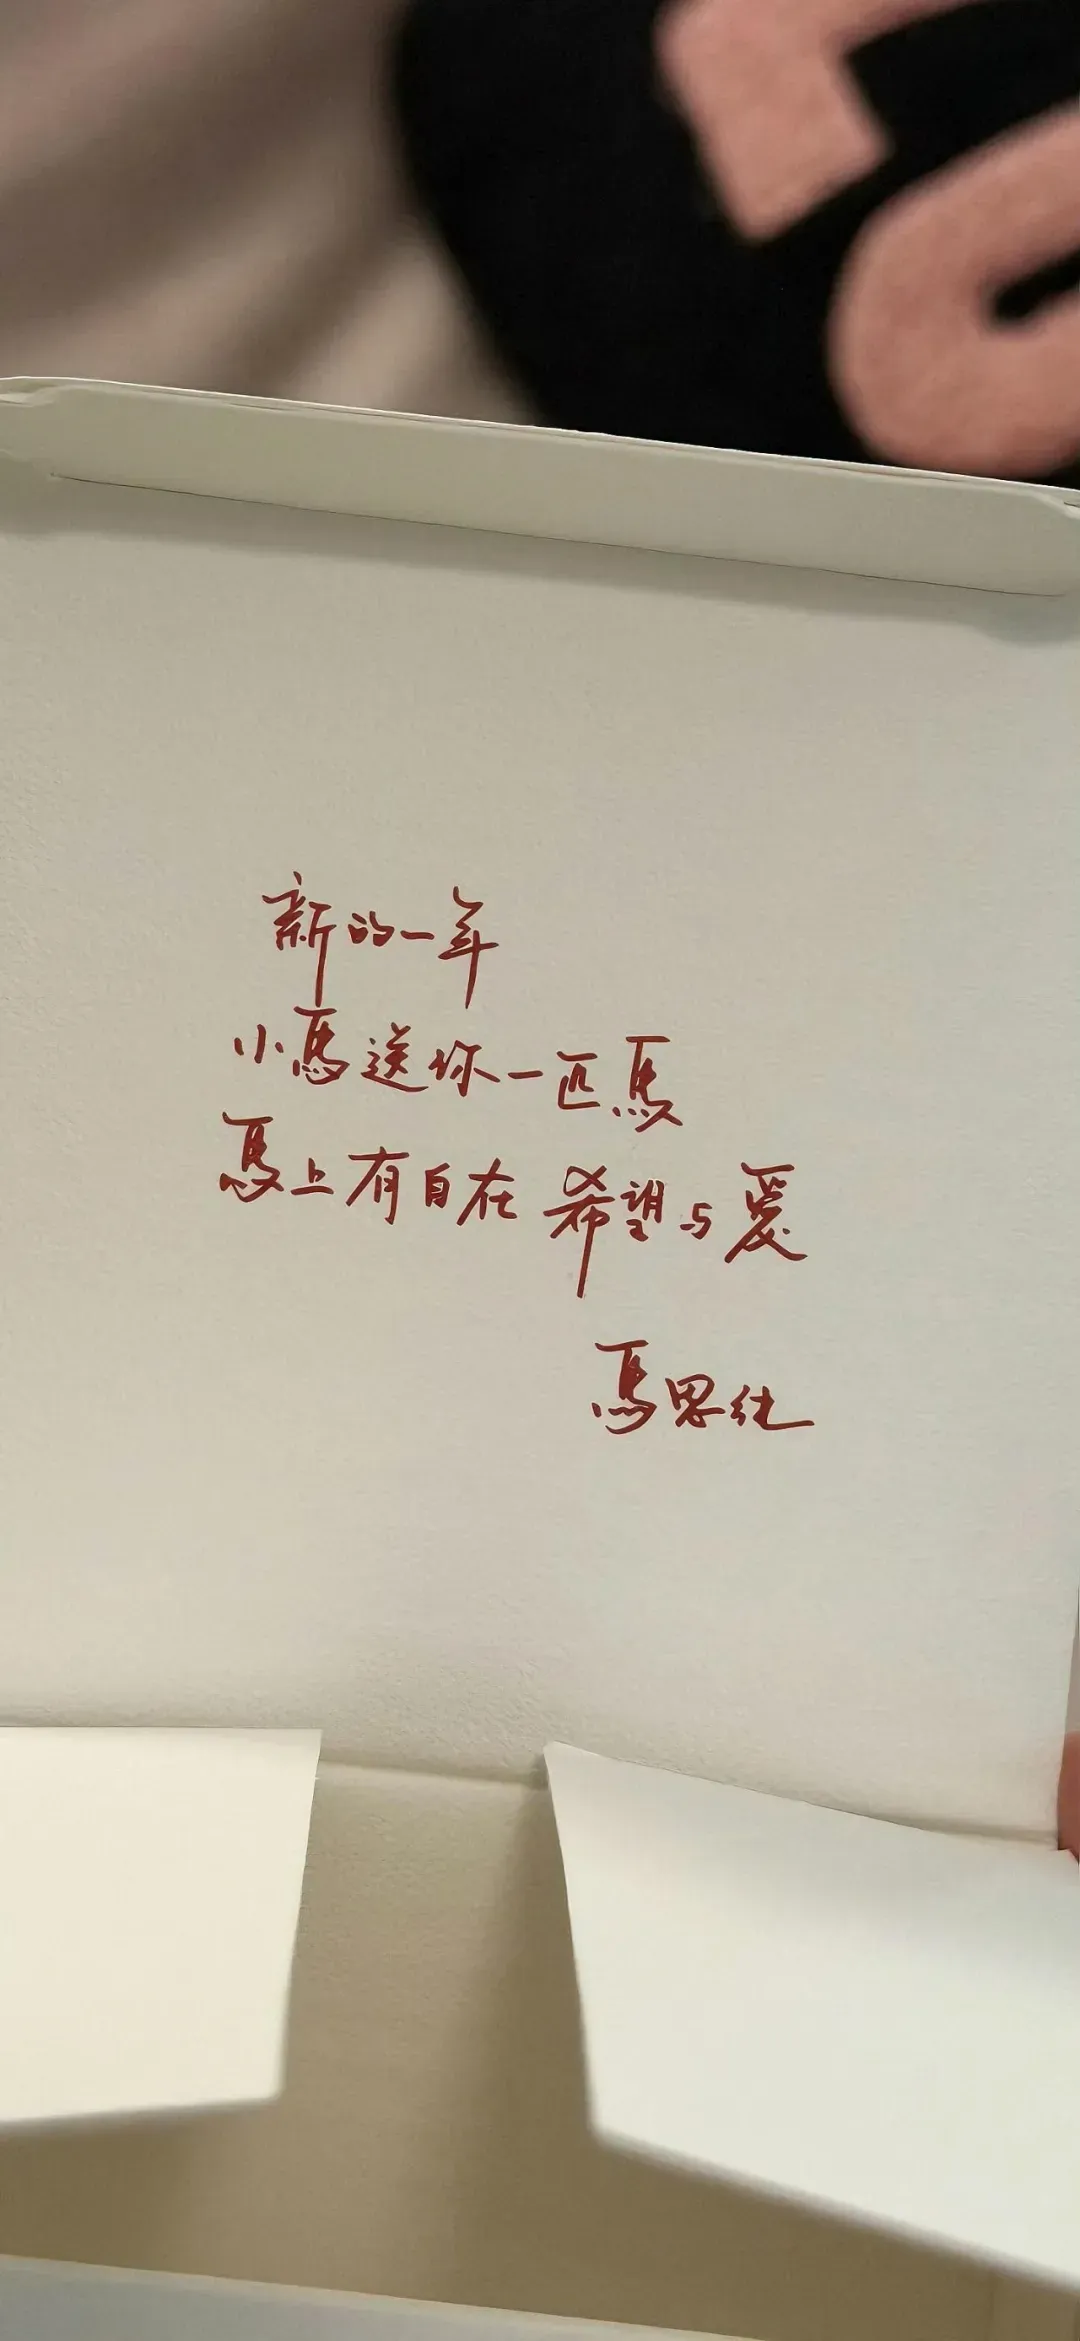 新的一年
小馬送你一匹馬
馬上有自在 希望与爱
馬思纯